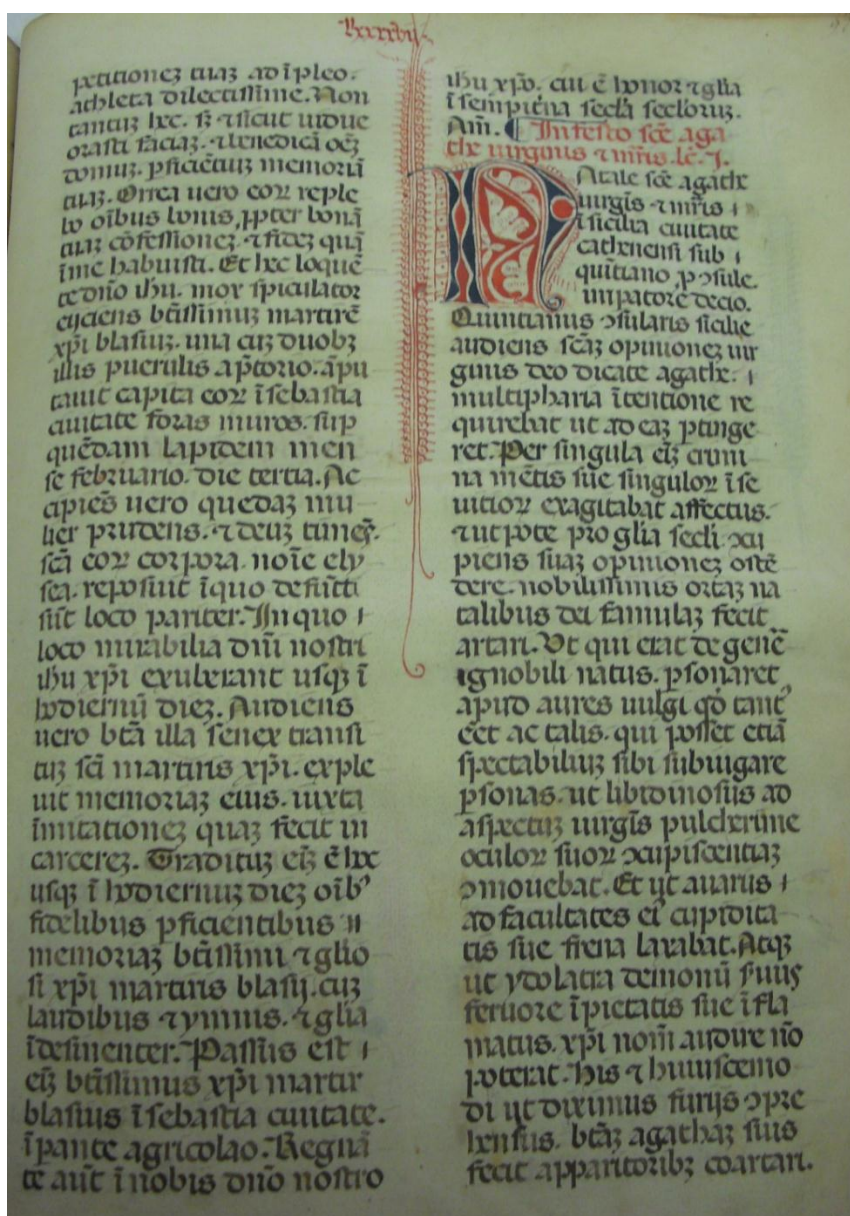 lxxxxvij
petitioneʒ tuaʒ adĩpleo.
athleta dilectissime. Non
tantuʒ hec. sʒ ⁊ sicut uidue
orasti faciaʒ. ⁊ benedicā oēʒ
domuʒ. pficiētuʒ memoriā
tuaʒ. Orrea uero eoꝝ reple
bo oībus bonis, ppter bonā
tuaʒ cōfessioneʒ ⁊ fideʒ quā
ĩme habuisti. Et hec loquē
te dno ihu. mox spiculator
eijciens btissimuʒ martirē
xpi blasiuʒ. una cuʒ duobʒ
illis puerulis aptorio. āpu
tauit capita eoꝝ ĩsebastia
ciuitate foras muros. sup
quēdam lapidem men
se februario. die tertia. Ac
cipiēs uero quedaʒ mu
lier prudens. ⁊ deuʒ timēs.
scā eoꝝ corpora. noīe ely
sea. reposuit ĩquo defūcti
sūt loco pariter. In quo ı
loco mirabilia dni nostri
ihu xpi exuberant usqʒ ĩ
hodiernū dieʒ. Audiens
uero btā illa senex transi
tuʒ scī martiris xpi. exple
uit memoriaʒ eius. iuxta
ĩmitationeʒ quaʒ fecit in
carcereʒ. Tradituʒ eʒ ē hec
usqʒ ĩ hodiernuʒ dieʒ oīb'
fidelibus pficientibus ıı
memoriaʒ btissimi ⁊ glio
si xpi martiris blasij. cuʒ
laudibus ⁊ ymnis. ⁊ glia
ĩdesinenter. Passus est ı
eʒ btissimus xpi martir
blasius ĩsebastia ciuitate.
ĩpante agricolao. Regnā
te aūt ĩ nobis dno nostro
ihu xpo. cui ē honor ⁊ glia
ĩ sempiterna secla secloruʒ.
Am. In festo scē aga
the uirginis ⁊ mris. lc. J.
NAtale scē agathe
uirgīs ⁊ mris ı
ĩ sicilia ciuitate
cathenensi sub ı
quītiano ꝓ ɔsule.
impatore decio.
Quintianus ɔsularis sicilie
audiens scāʒ opinioneʒ uir
ginis deo dicate agathe. ı
multipharia ĩtentione re
quirebat ut ad eaʒ ptinge
ret. Per singula eʒ crimi
na mētis sue singuloꝝ ĩ se
uitioꝝ exagitabat affectus.
⁊ ut pote pro glia secli ɔcu
piens suaʒ opinioneʒ ostē
dere. nobilissimis ortaʒ na
talibus dei famulaʒ fecit
artari. Vt qui erat de genē
ignobili natus. psonaret
apud aures uulgi qd tant'
eēt ac talis. qui posset etiā
spectabiliuʒ sibi subiugare
psonas. ut libidinosus ad
aspectuʒ uirgīs pulcherime
oculoꝝ suoꝝ ɔcupiscentiaʒ
ɔmouebat. Et ut auarus ı
ad facultates ei' cupidita
tis sue frena laxabat. Atqʒ
ut ydolatra demonū suus
feruore ĩpietatis sue ĩfla
matus. xpi nom audire nō
poterat. His ⁊ huiuscemo
di ut diximus furijs ɔpre
hensus. btāʒ agathaʒ suis
fecit apparitoribʒ coartari.